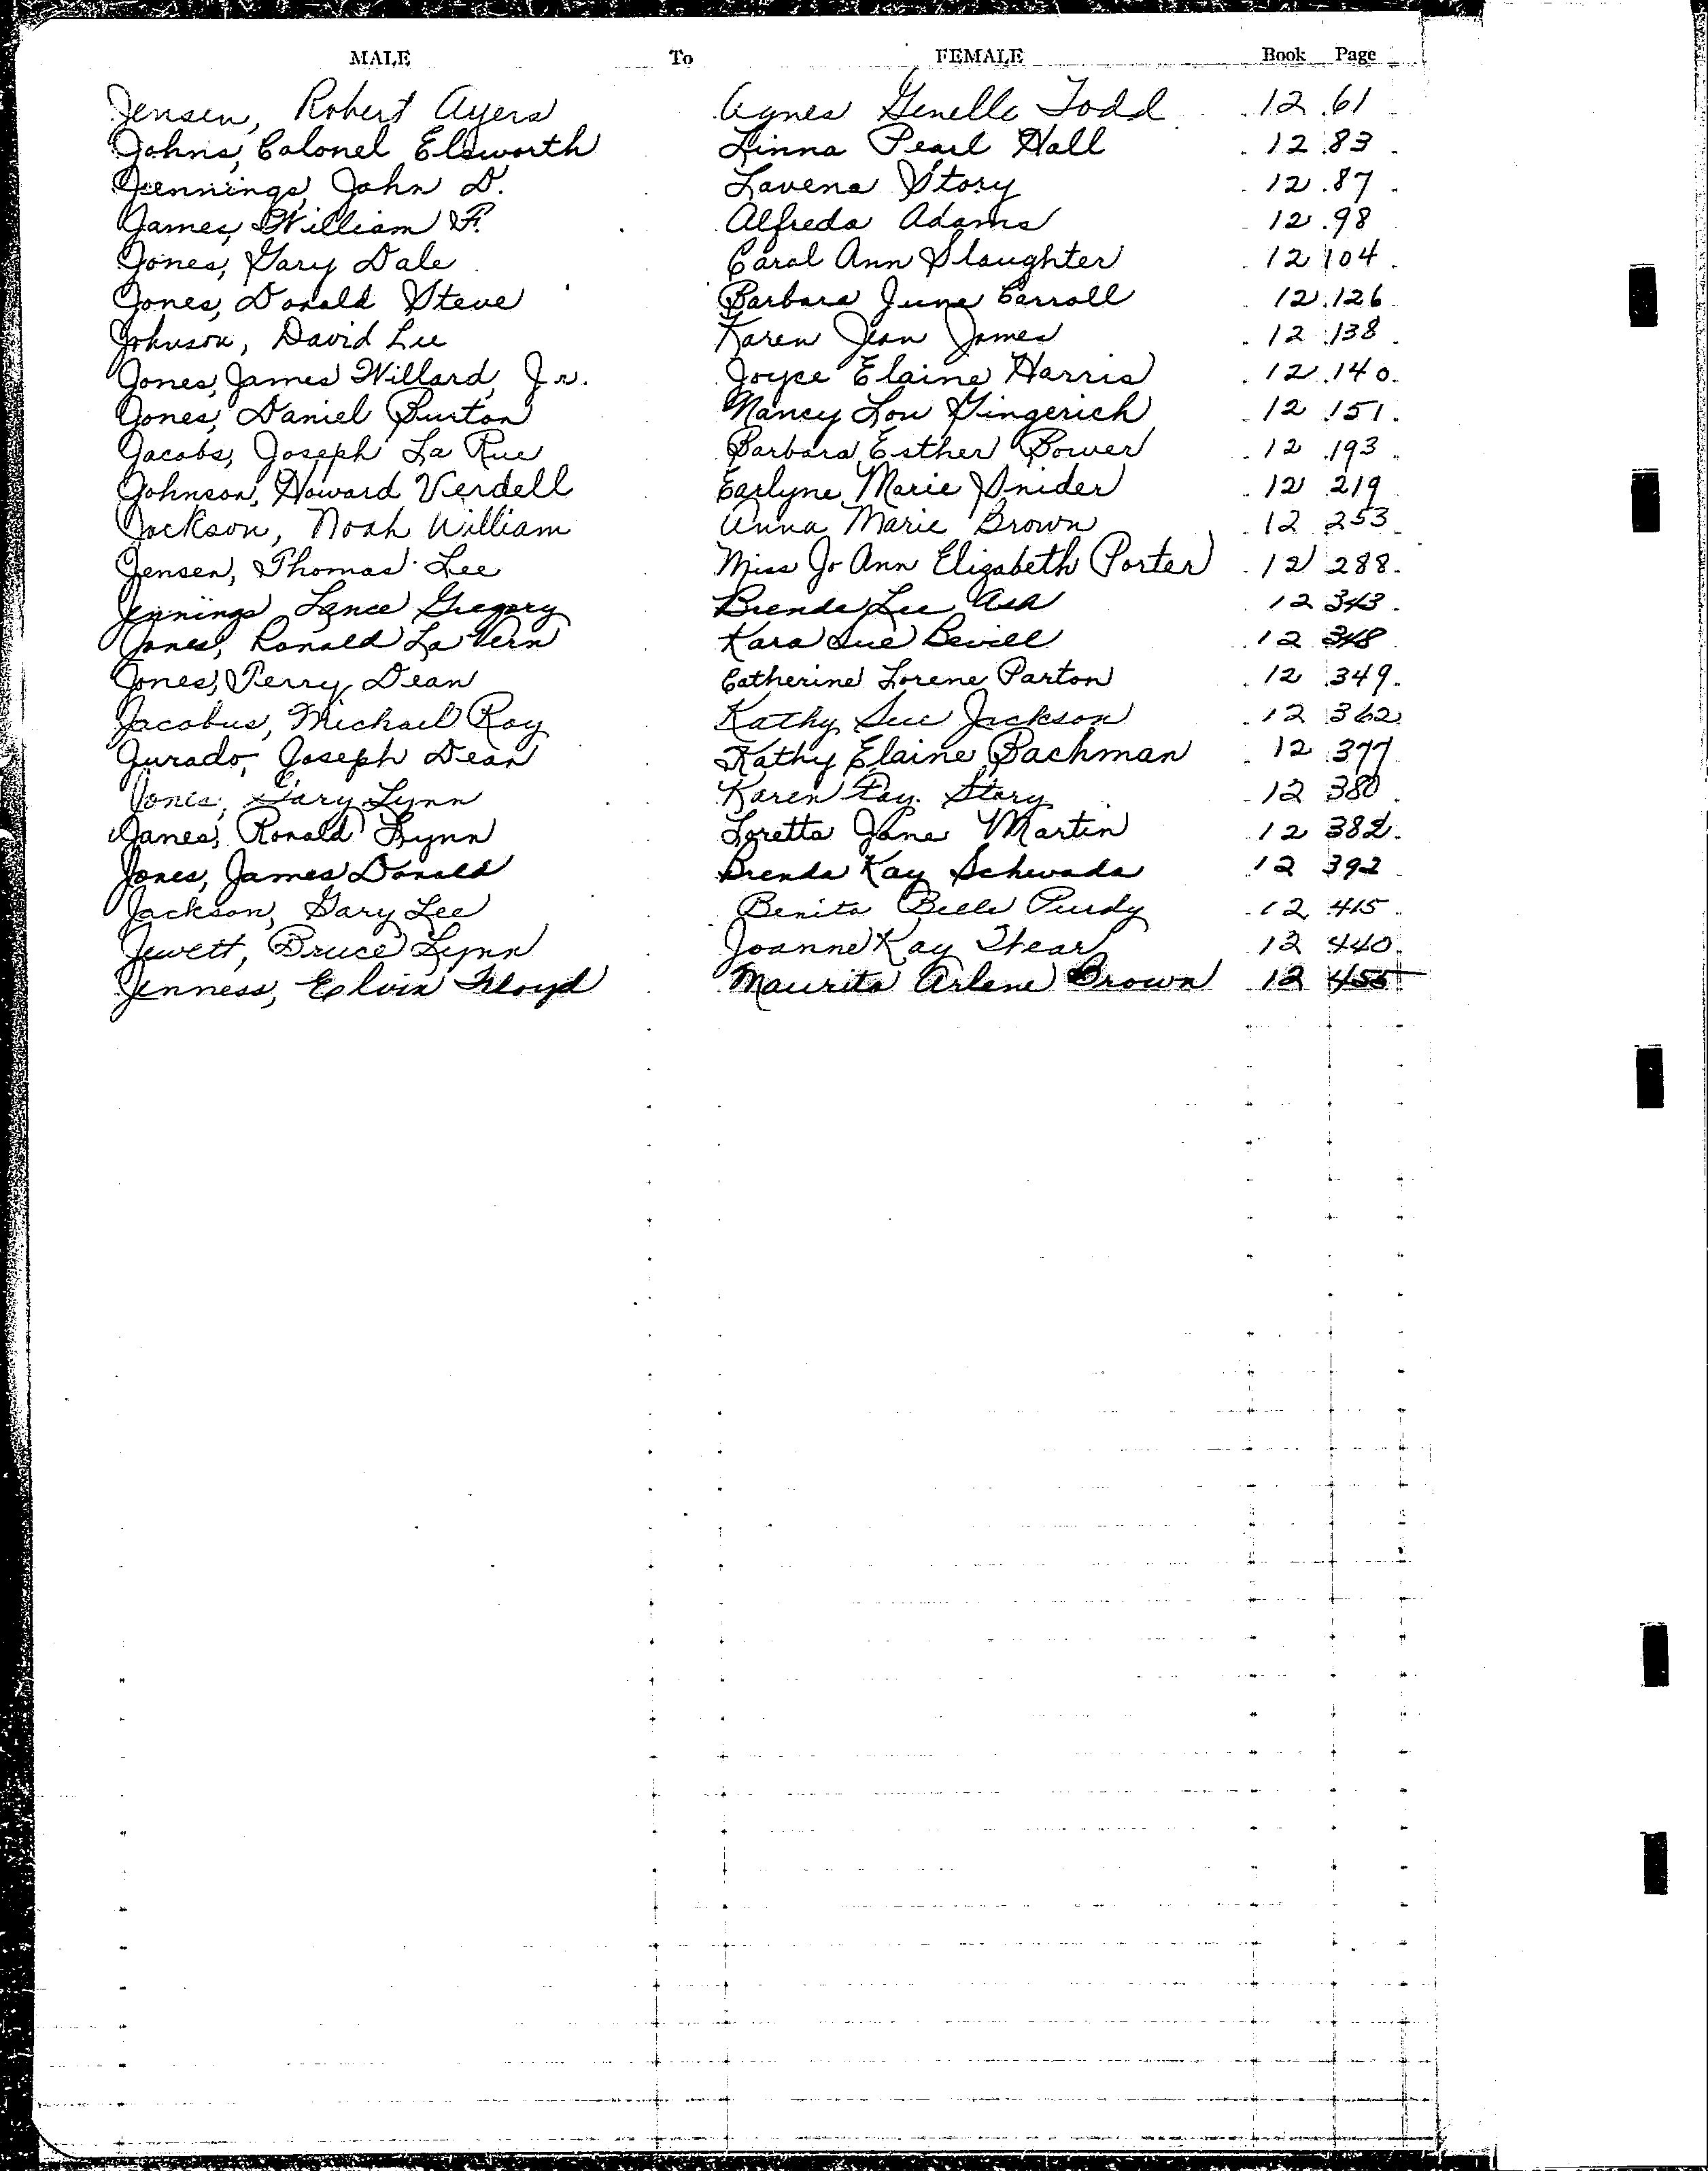 MALE To FEMALE Book Page
Jensen, Robert Ayers Agnes Genelle Todd 12 61
Johns, Colonel Elsworth Linna Pearl Hall 12 83
Jennings, John D. Lavena Story 12 87
James, William F. Alfreda Adams 12 98
Jones, Gary Dale Carol Ann Slaughter 12 104
Jones, Donald Steve Barbara June Carroll 12 126
Johnson, David Lee Karen Jean James 12 138
Jones, James Willard, Jr. Joyce Elaine Harris 12 140
Jones, Daniel Burton Nancy Lou Gingerich 12 151
Jacobs, Joseph La Rue Barbara Esther Bower 12 193
Johnson, Howard Verdell Earlyne Marie Snider 12 219
Jackson, Noah William Anna Marie Brown 12 253
Jensen, Thomas Lee Miss Jo Ann Elizabeth Porter 12 288
Jennings, Lance Gregory Brenda Lee Ash 12 343
Jones, Ronald La Vern Kara Sue Bevill 12 348
Jones, Perry Dean Catherine Lorene Parton 12 349
Jacobus, Michael Roy Kathy Sue Jackson 12 362
Jurado, Joseph Dean Kathy Elaine Bachman 12 377
Jones, Gary Lynn Karen Fay Story 12 380
Janes, Ronald Lynn Loretta Jane Martin 12 382
Jones, James Donald Brenda Kay Schwada 12 392
Jackson, Gary Lee Benita Belle Purdy 12 415
Jewett, Bruce Lynn Joanne Kay 12 440
Jenness, Elvin Floyd Maurita Arlene Brown 12 455